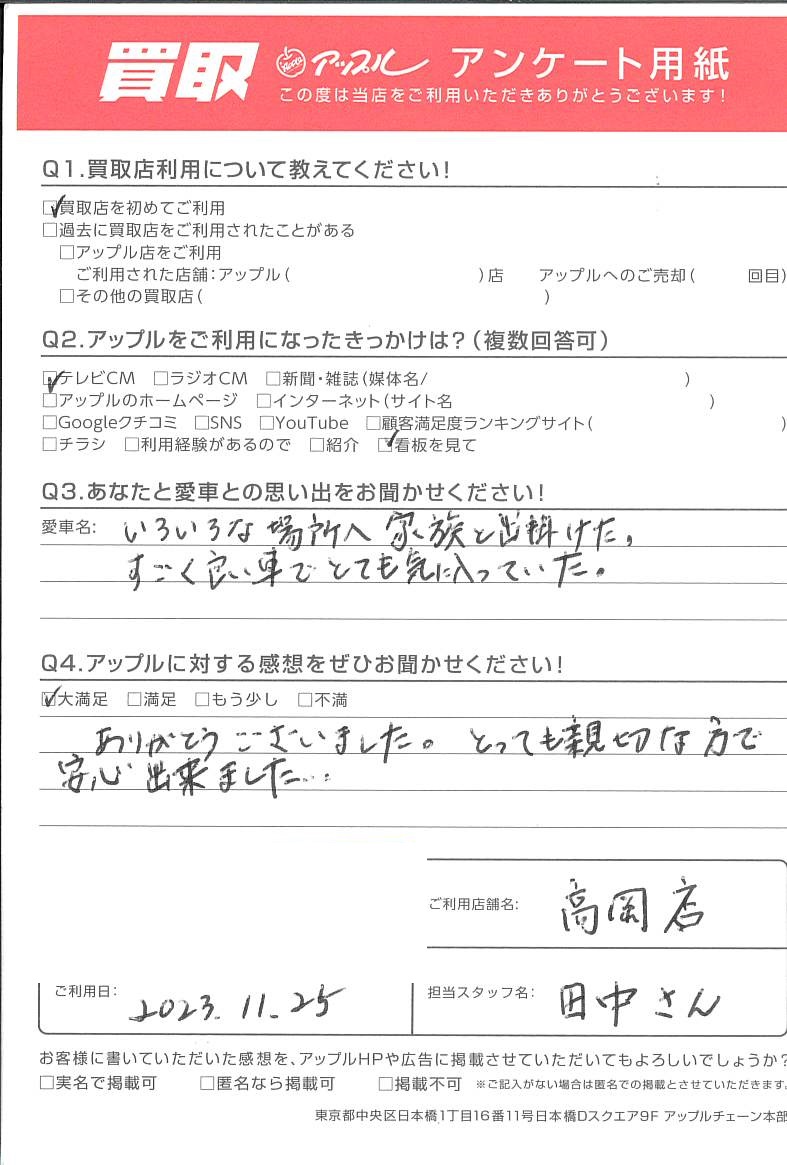 買取 アップル アンケート用紙
この度は当店をご利用いただきありがとうございます!
Q1.買取店利用について教えてください!
☑買取店を初めてご利用
□過去に買取店をご利用されたことがある
□アップル店をご利用
ご利用された店舗:アップル( )店 アップルへのご売却( 回目)
□その他の買取店( )
Q2.アップルをご利用になったきっかけは?(複数回答可)
☑テレビCM □ラジオCM □新聞・雑誌(媒体名/ )
□アップルのホームページ □インターネット(サイト名 )
□Googleクチコミ □SNS □YouTube □顧客満足度ランキングサイト( )
□チラシ □利用経験があるので □紹介 ☑看板を見て
Q3.あなたと愛車との思い出をお聞かせください!
愛車名: いろいろな場所へ家族と出掛けた。
すごく良い車でとても気に入っていた。
Q4.アップルに対する感想をぜひお聞かせください!
☑大満足 □満足 □もう少し □不満
ありがとうございました。とっても親切な方で
安心出来ました...
ご利用店舗名: 高岡店
ご利用日: 2023.11.25 担当スタッフ名: 田中さん
お客様に書いていただいた感想を、アップルHPや広告に掲載させていただいてもよろしいでしょうか?
□実名で掲載可 □匿名なら掲載可 □掲載不可 ※ご記入がない場合は匿名での掲載とさせていただきます。
東京都中央区日本橋1丁目16番11号日本橋Dスクエア9F アップルチェーン本部